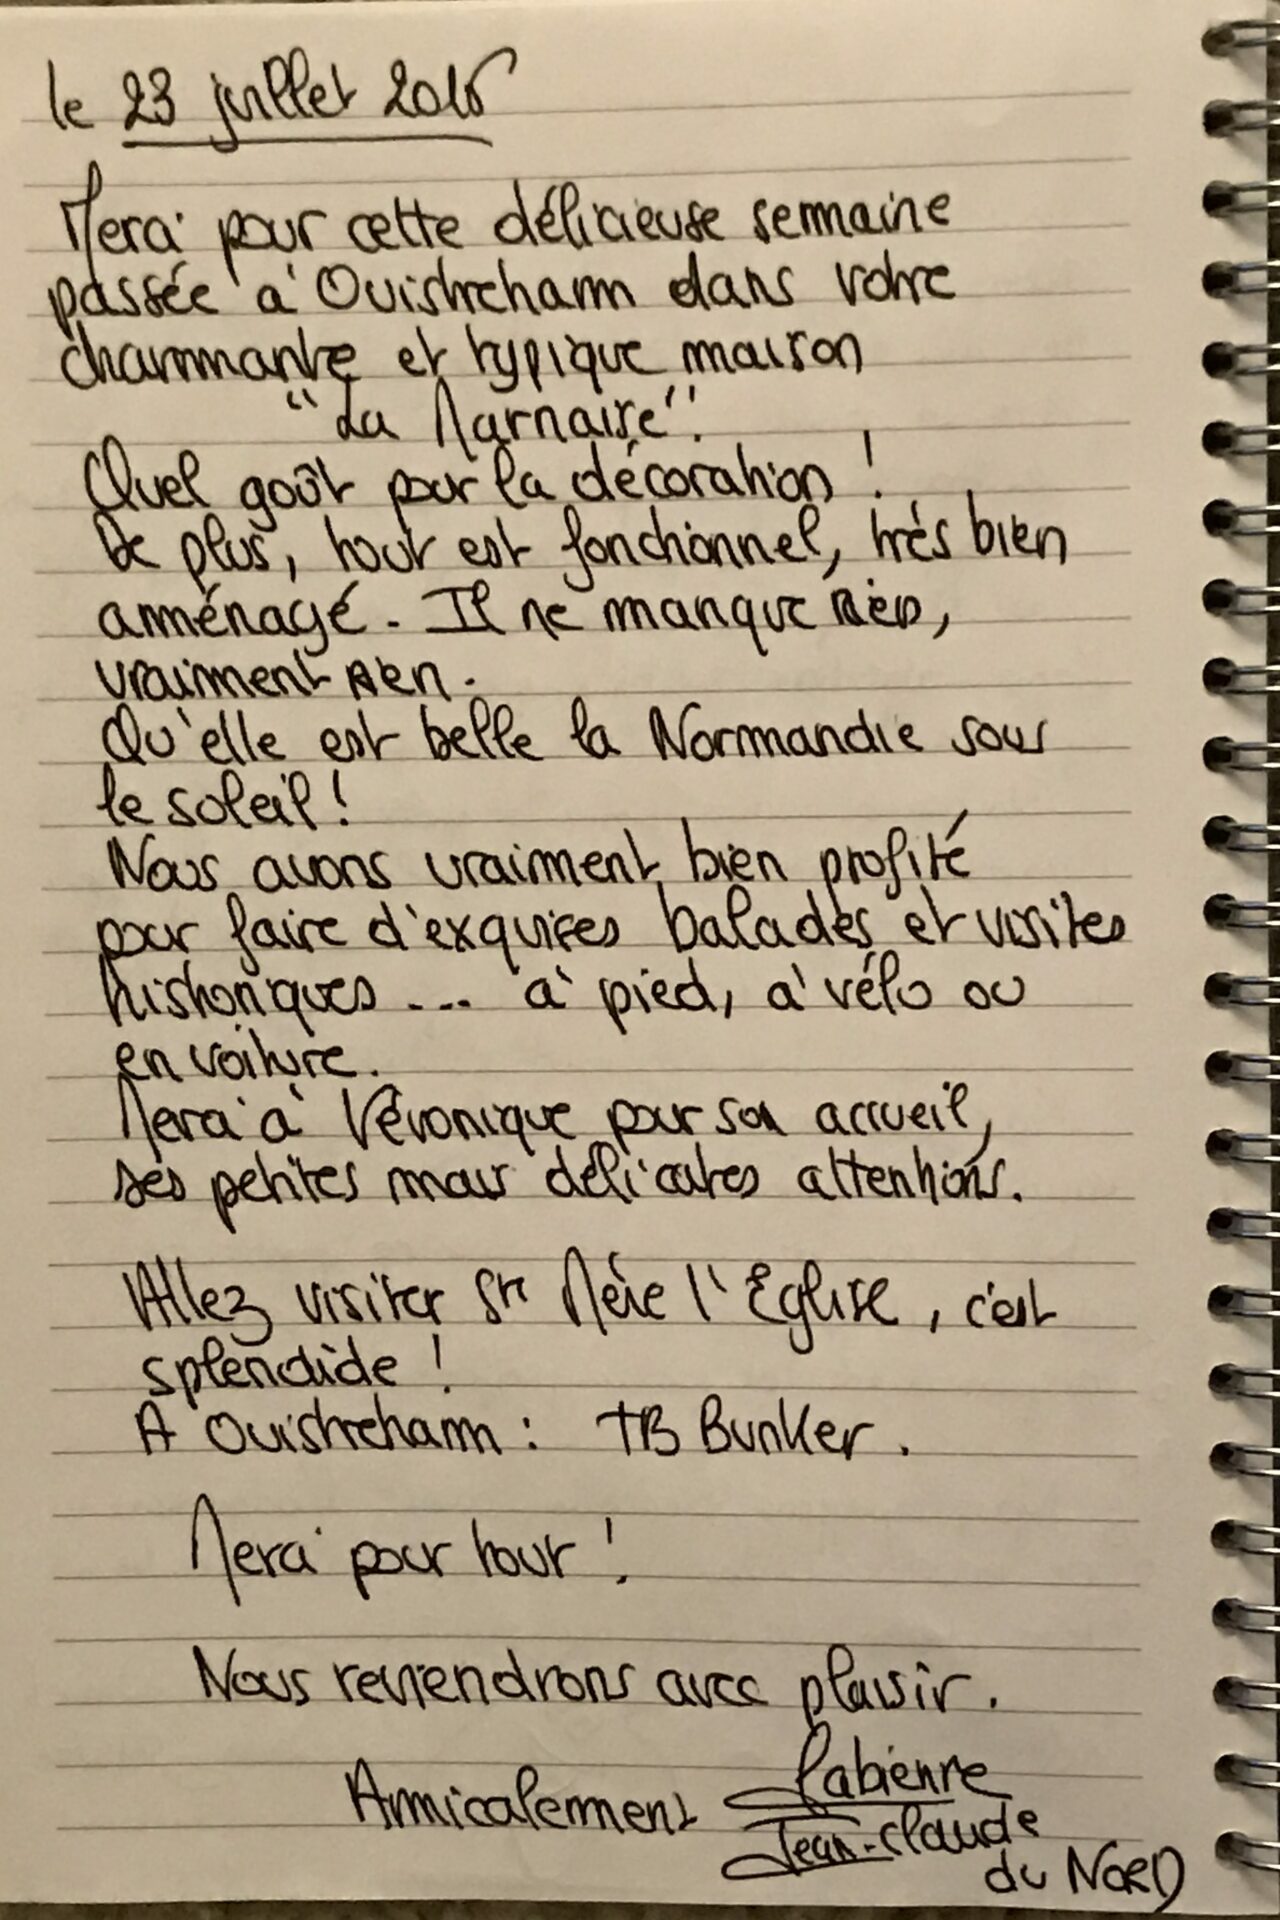 le 23 juillet 2016
Merci pour cette délicieuse semaine
passée à Ouistreham dans votre
charmante et typique maison
"La Marnaise".
Quel goût pour la décoration !
De plus, tout est fonctionnel, très bien
aménagé. Il ne manque RIEN,
vraiment RIEN.
Qu'elle est belle la Normandie sous
le soleil !
Nous avons vraiment bien profité
pour faire d'exquises balades et visites
historiques... à pied, à vélo ou
en voiture.
Merci à Véronique pour son accueil,
ses petites mais délicates attentions.
Allez visiter Ste Mère l'Eglise, c'est
splendide !
A Ouistreham : TB Bunker.
Merci pour tout !
Nous reviendrons avec plaisir.
Amicalement Fabienne
Jean-Claude
du NORD